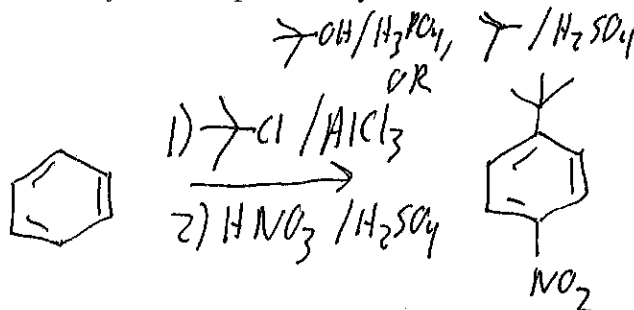 OH/H3PO4, /H2SO4
OR
1) Cl/AlCl3
2) HNO3/H2SO4
NO2